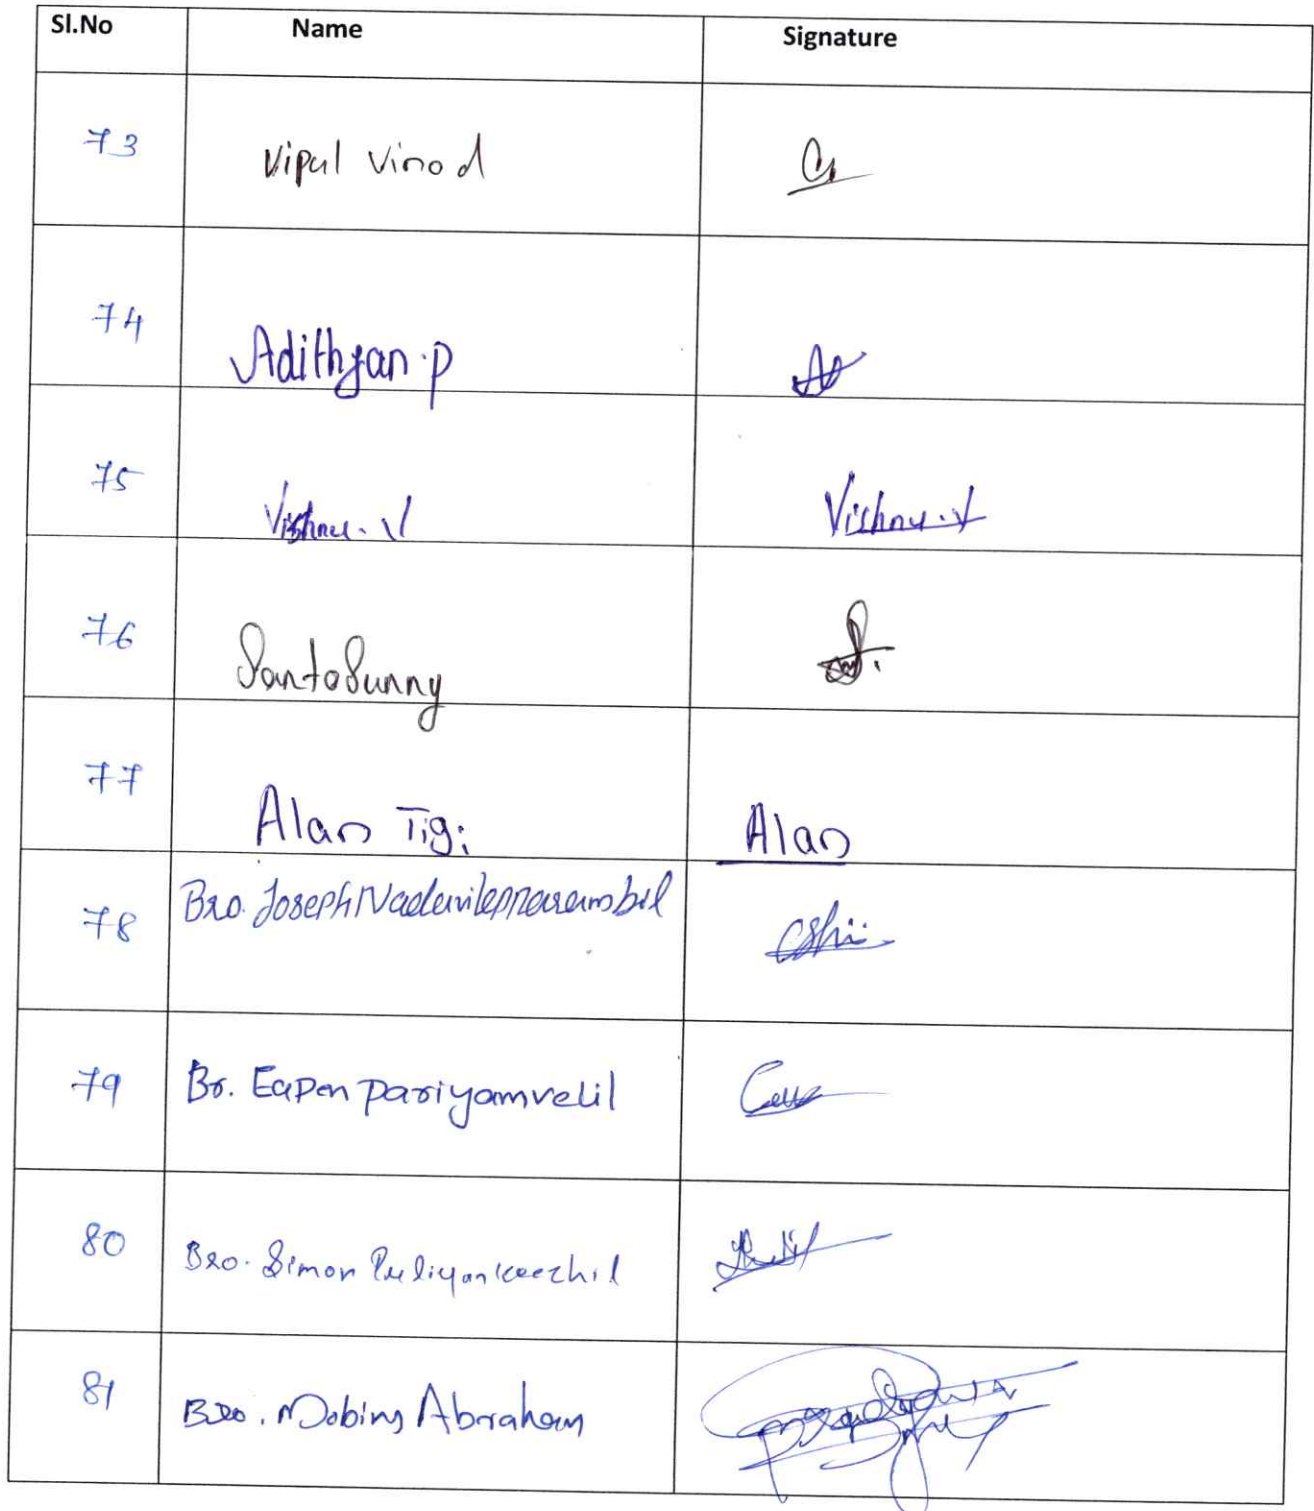 Sl.No Name Signature
73 Vipul Vinod
74 Adithyan.P
75 Vishnu.V Vishnu.V
76 Santo Sunny
77 Alan Tigi Alan
78 Bro. Joseph Naduvileparambil
79 Br. Eapen Pariyamvelil
80 Bro. Simon Puliyankeezhil
81 Bro. Mobins Abraham